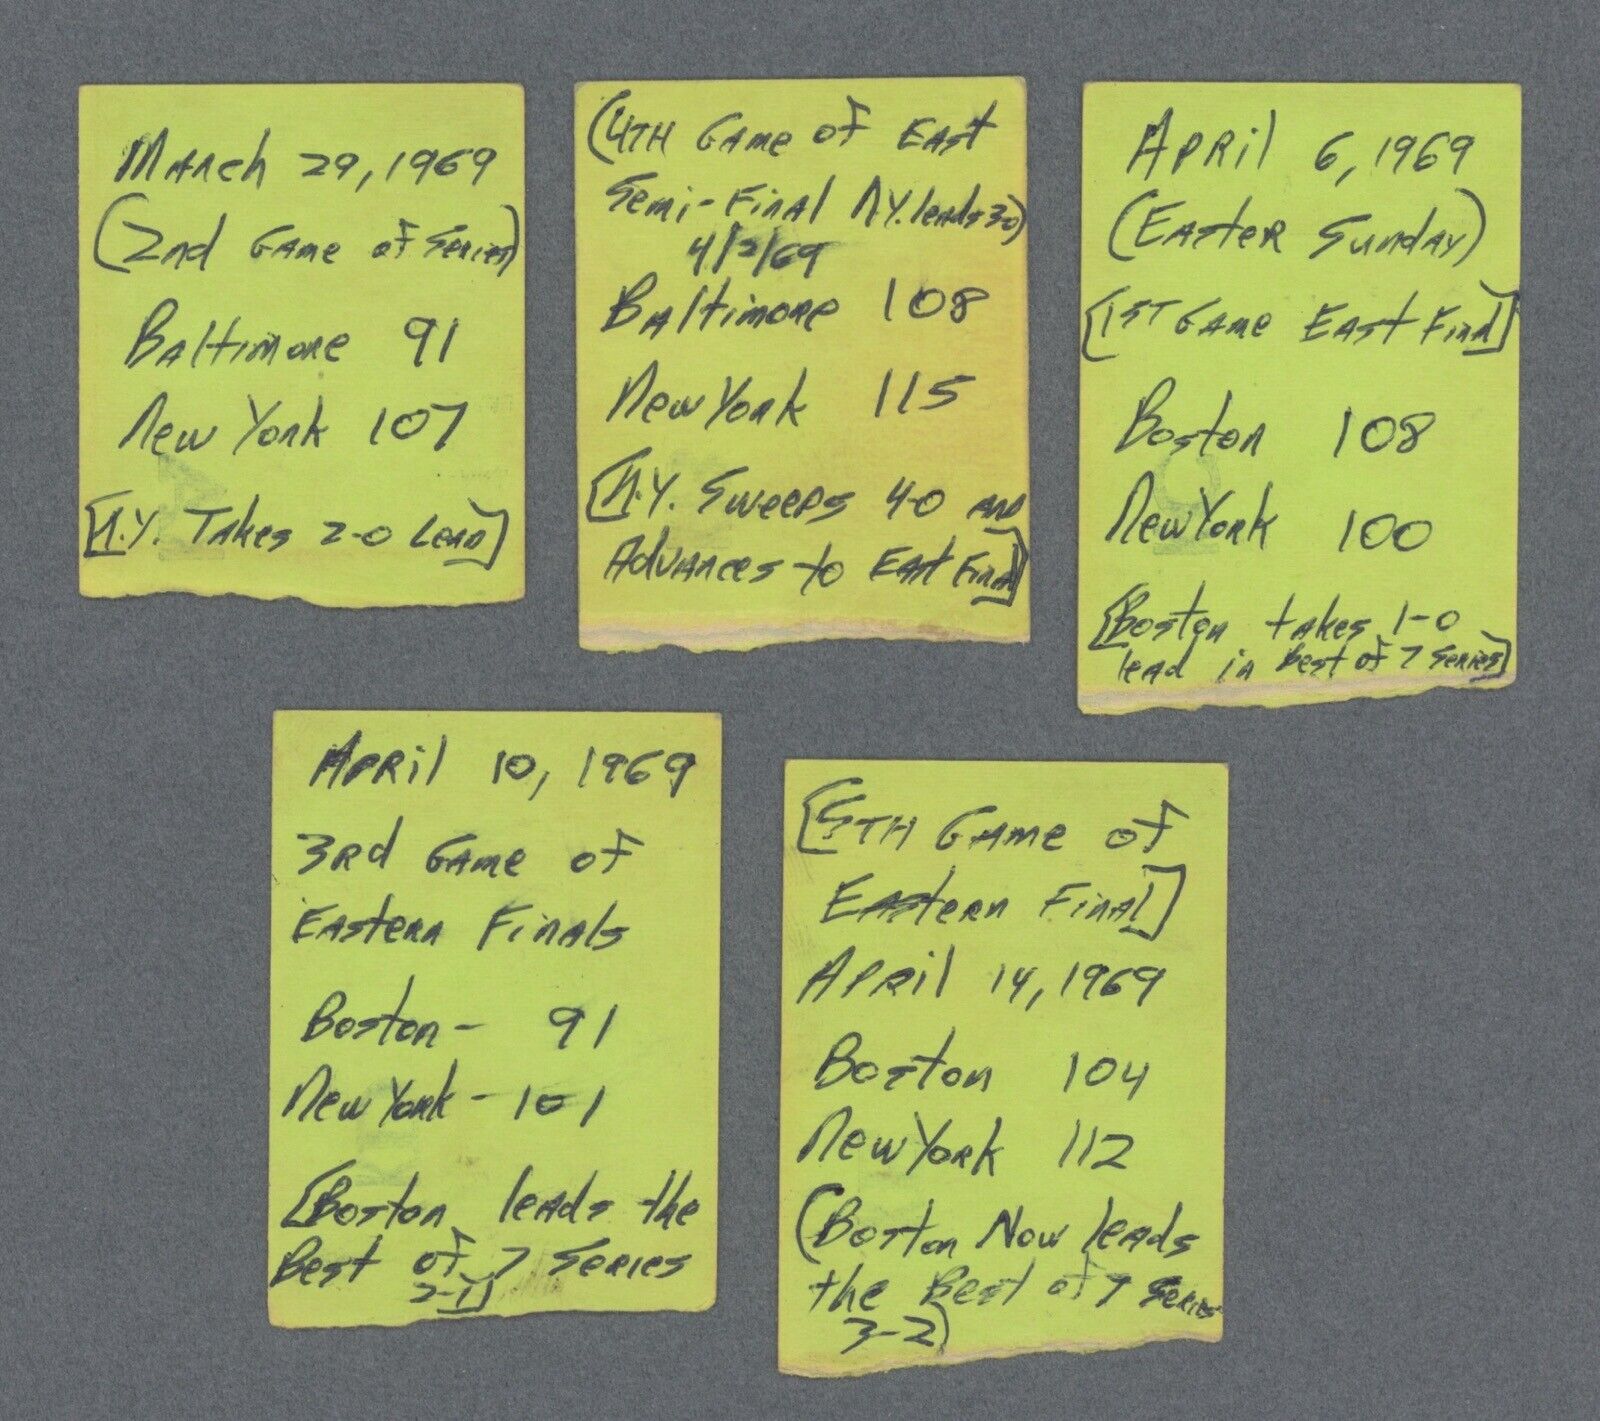 March 29, 1969
(2nd Game of Series)
Baltimore 91
New York 107
[N.Y. Takes 2-0 Lead]
(4TH Game of East
Semi-Final N.Y. leads 3-0)
4/2/69
Baltimore 108
New York 115
[N.Y. Sweeps 4-0 and
Advances to East Final]
April 6, 1969
(Easter Sunday)
[1ST Game East Final]
Boston 108
New York 100
[Boston takes 1-0
lead in Best of 7 Series]
April 10, 1969
3rd Game of
Eastern Finals
Boston - 91
New York - 101
[Boston leads the
Best of 7 Series
2-1]
[5TH Game of
Eastern Final]
April 14, 1969
Boston 104
New York 112
(Boston Now leads
the Best of 7 Series
3-2)